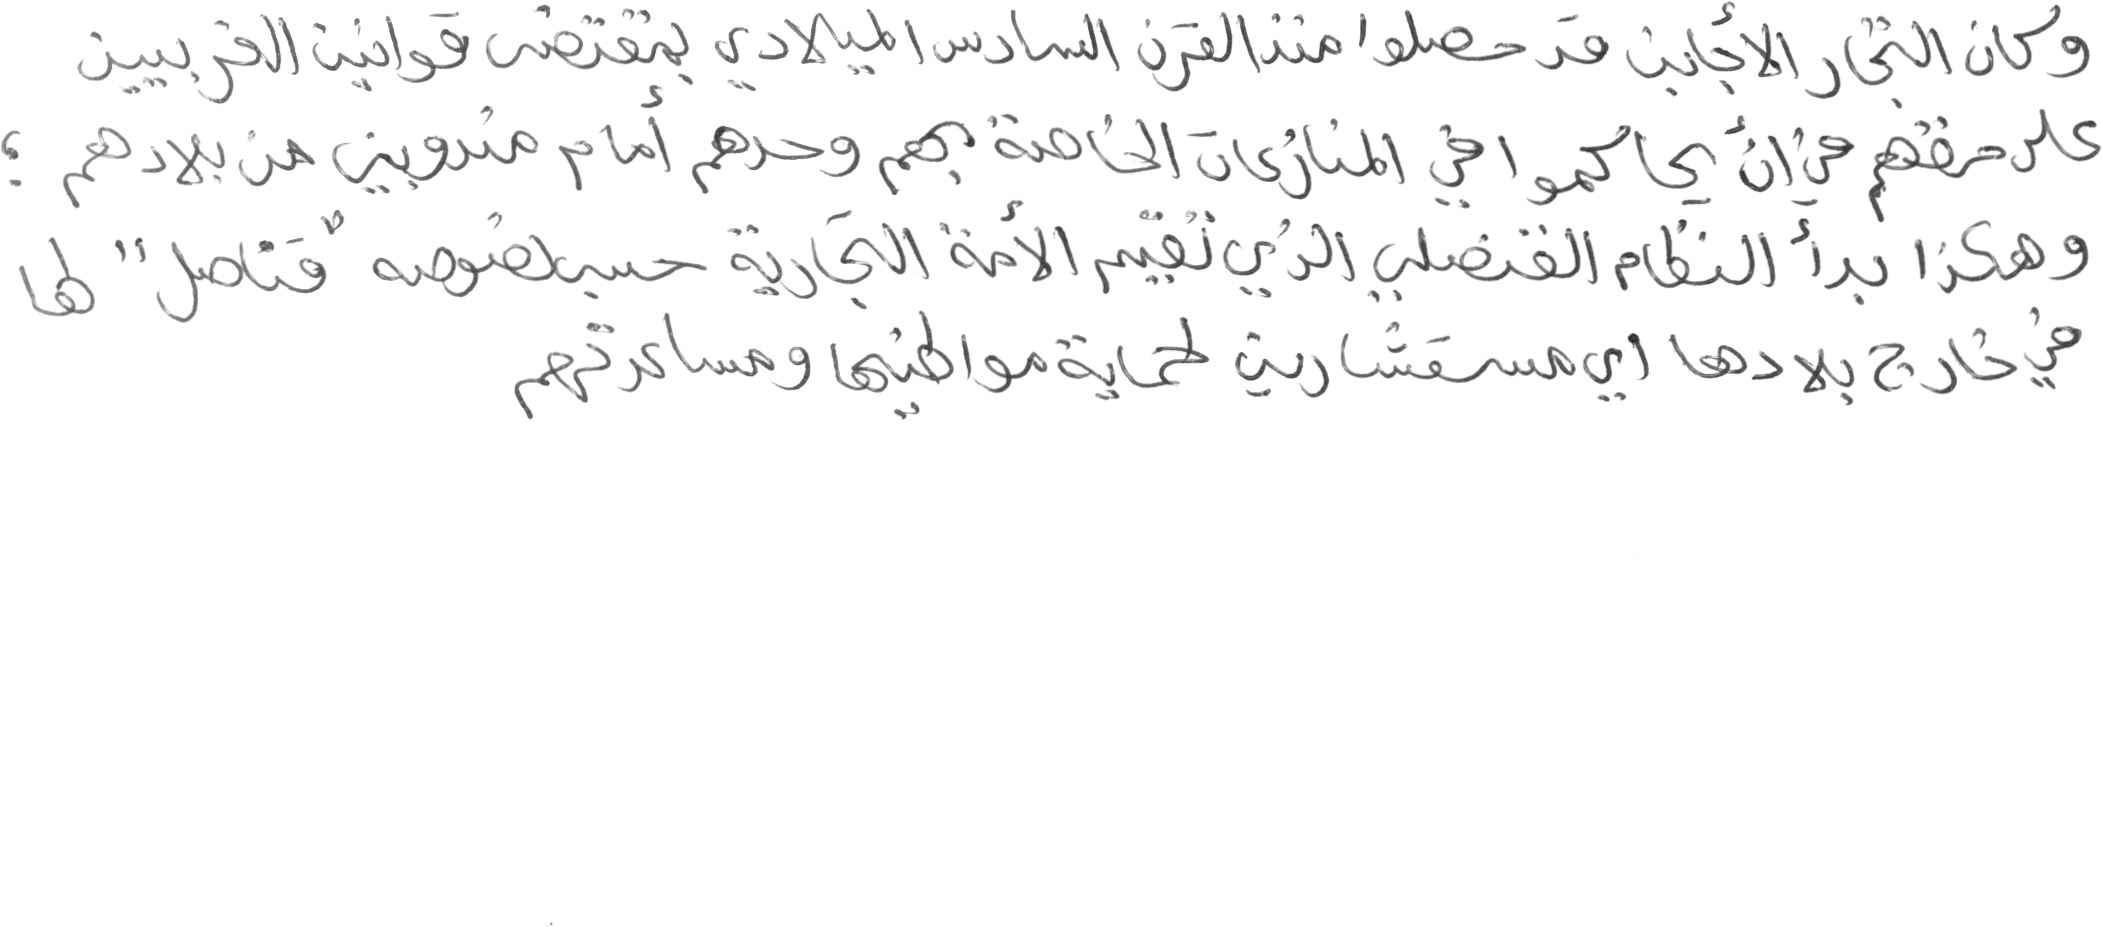 وكان التجار الأجانب قد حصلوا منذ القرن السادس الميلادي بمقتضى قوانين الغربيين
على حقهم في أن يحاكموا في المنازعات الخاصة بهم وحدهم أمام مندوبين من بلادهم ؛
وهكذا بدأ النظام القنصلي الذي تقيم الأمة التجارية حسب نصوصه "قناصل" لها
في خارج بلادها اي مستشارين لحماية مواطنيها ومساعدتهم